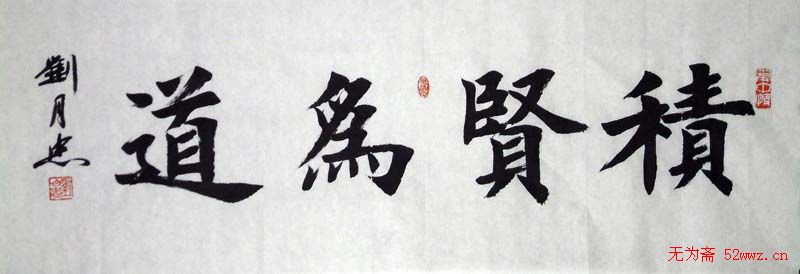 積賢為道
劉月忠
无为斋 52wwz.cn